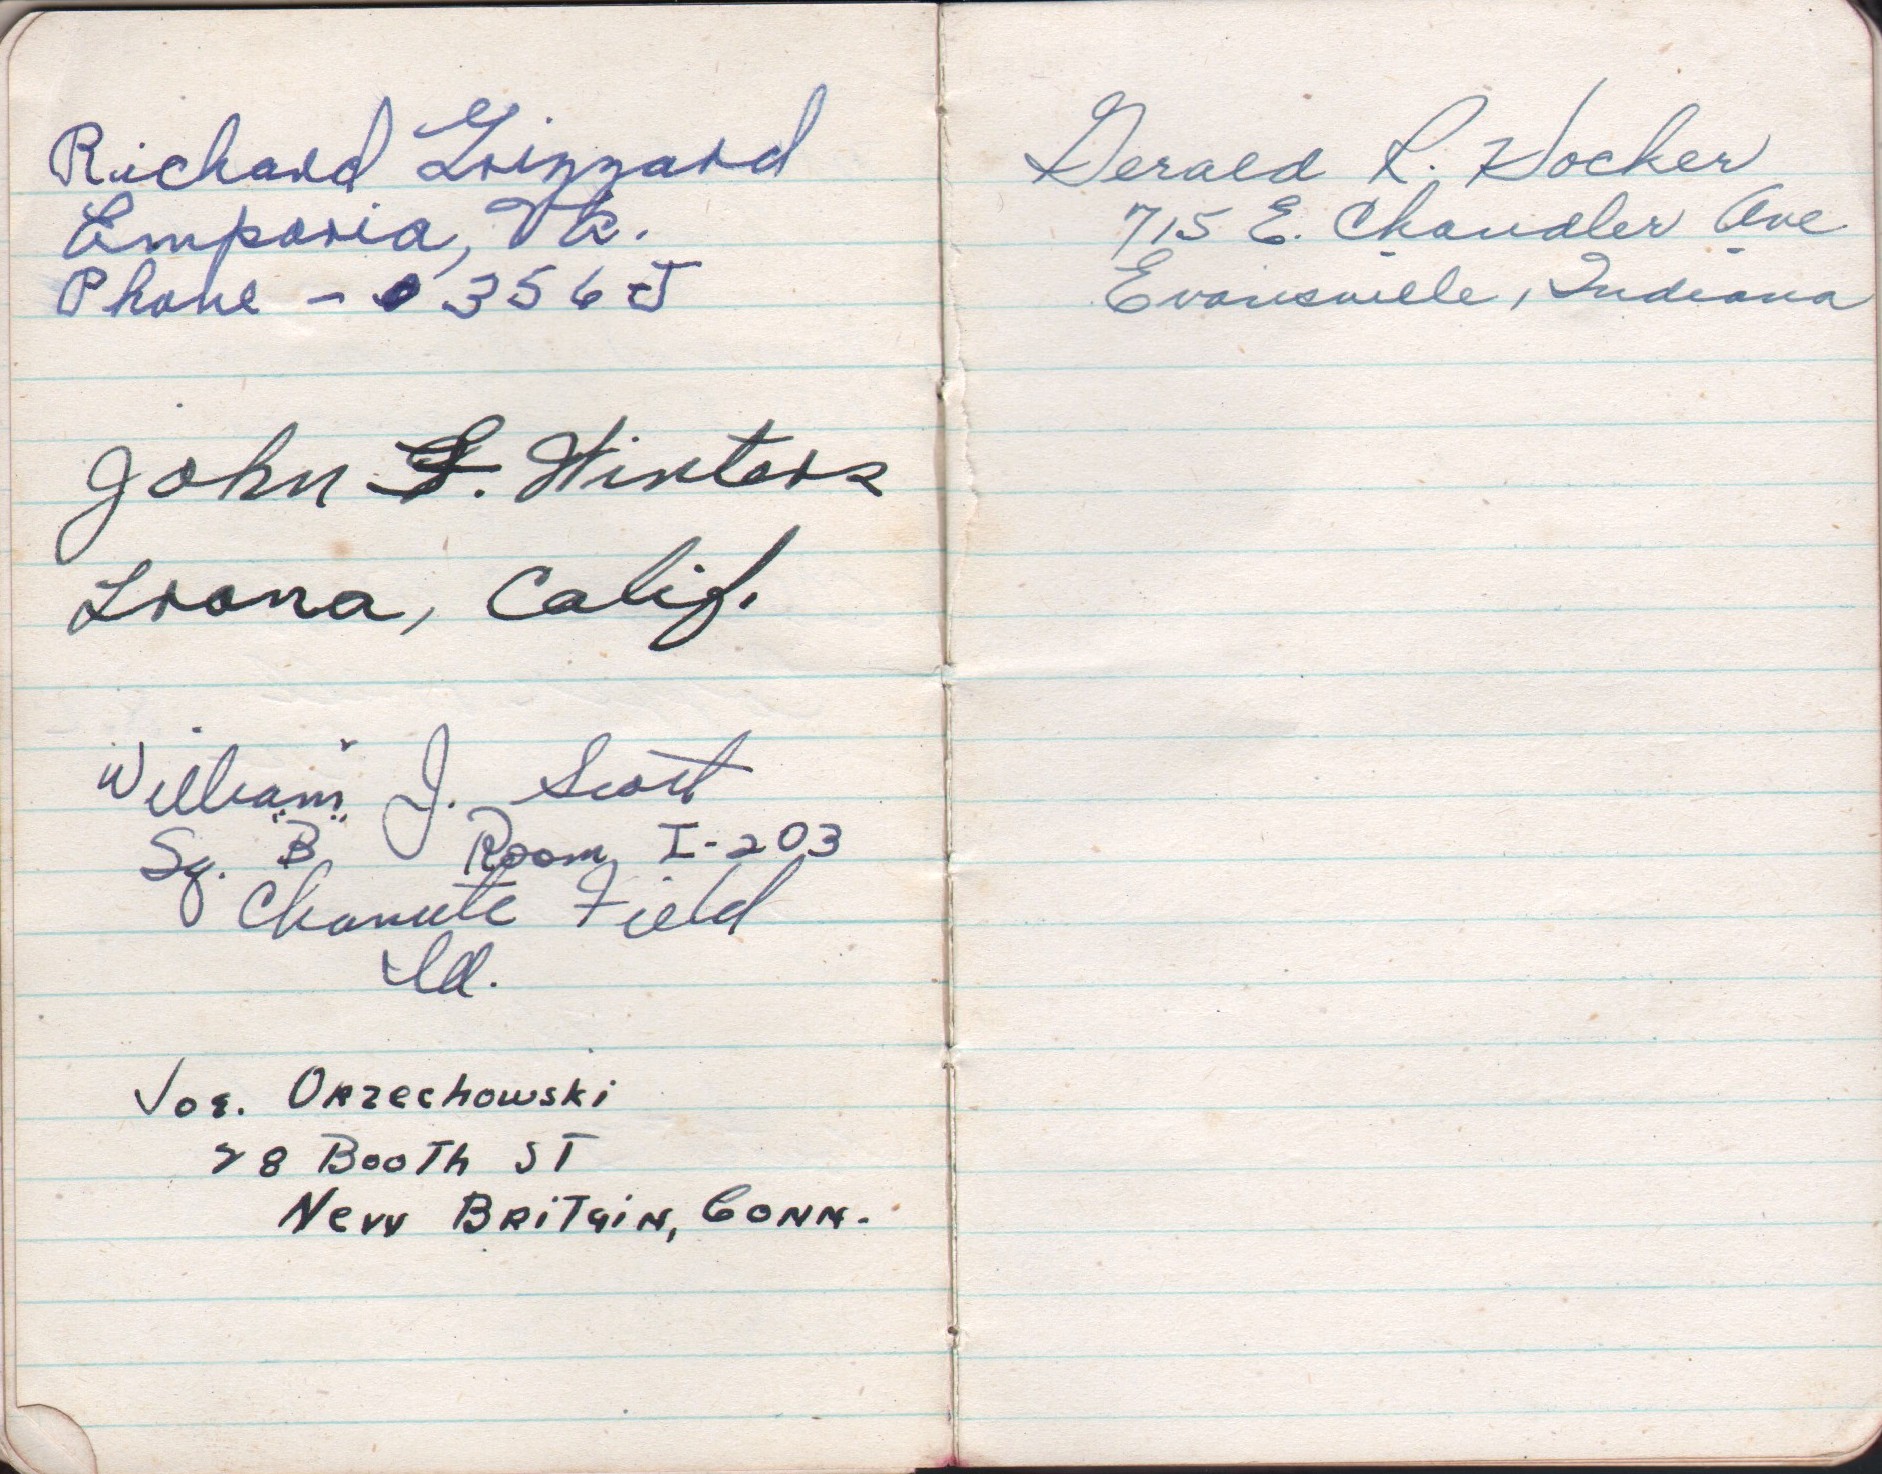 Richard Grizzard
Emporia, Va.
Phone - 356J
John F. Winters
Trona, Calif.
William J. Scott
Sq. "B" Room I-203
Chanute Field
Ill.
Joe. Orzechowski
28 Booth ST
New BRiTain, Conn.
Gerald R. Hocker
715 E. Chandler Ave
Evansville, Indiana